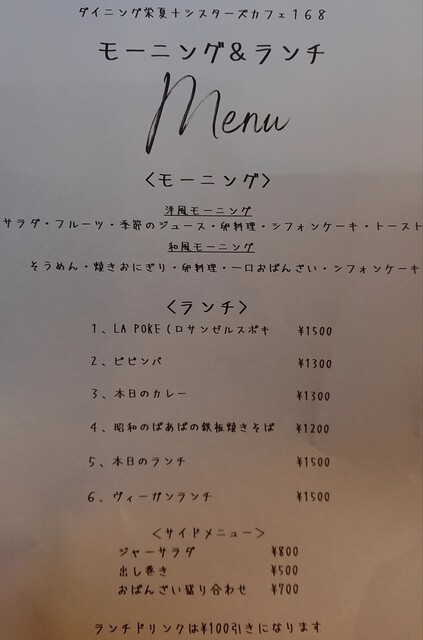 ダイニング栄夏+シスターズカフェ168
モーニング&ランチ
Menu
<モーニング>
洋風モーニング
サラダ・フルーツ・季節のジュース・卵料理・シフォンケーキ・トースト
和風モーニング
そうめん・焼きおにぎり・卵料理・一口おばんざい・シフォンケーキ
<ランチ>
1、LA POKE(ロサンゼルスポキ ¥1500
2、ビビンバ ¥1300
3、本日のカレー ¥1300
4、昭和のばあばの鉄板焼きそば ¥1200
5、本日のランチ ¥1500
6、ヴィーガンランチ ¥1500
<サイドメニュー>
ジャーサラダ ¥800
出し巻き ¥500
おばんざい盛り合わせ ¥700
ランチドリンクは¥100引きになります